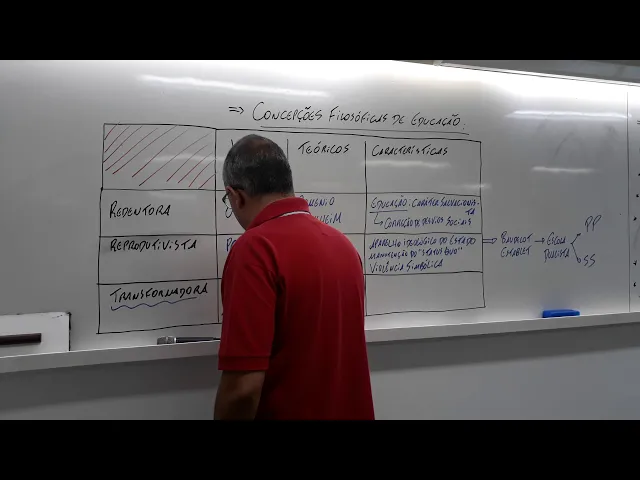 ⇒ CONCEPÇÕES FILOSÓFICAS DE EDUCAÇÃO:
TEÓRICOS CARACTERÍSTICAS
REDENTORA
EDUCAÇÃO: CARÁTER SALVACIONIS-
TA
↳ CORREÇÃO DE DESVIOS SOCIAIS
REPRODUTIVISTA
APARELHO IDEOLÓGICO DO ESTADO
MANUTENÇÃO DO "STATUS QUO"
VIOLÊNCIA SIMBÓLICA
⇒ BAUDELOT → ESCOLA PP
ESTABLET DUALISTA SS
TRANSFORMADORA